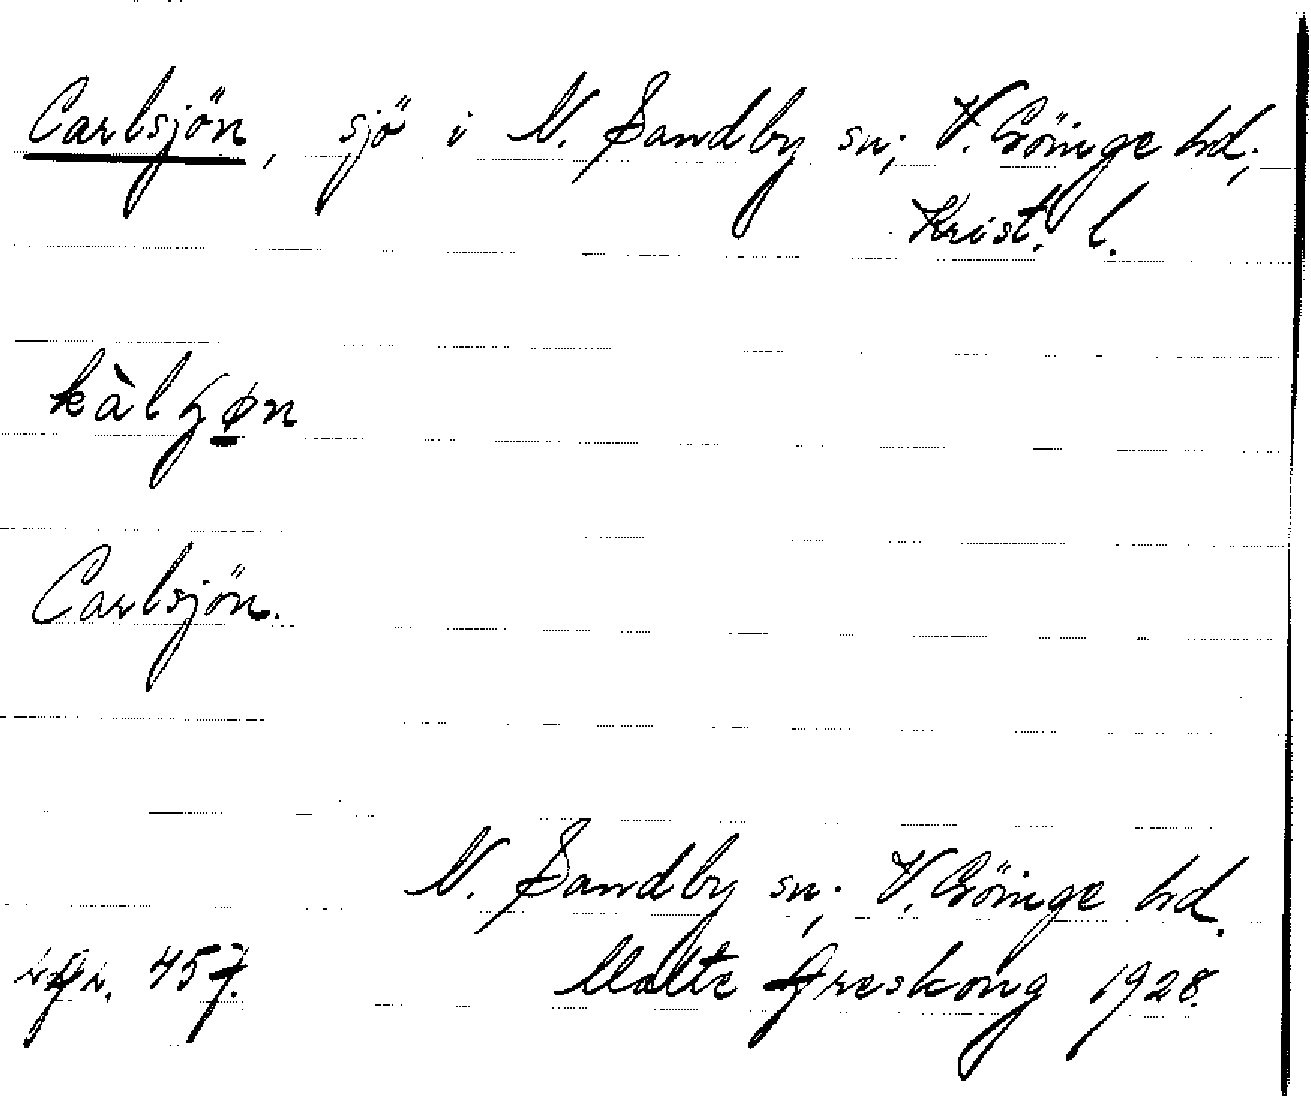 Carlsjön, sjö i N. Sandby sn; V. Göinge hd;
Krist. l.
kàlʂøn
Carlsjön.
N. Sandby sn; V. Göinge hd.
457. Malte Areskoug 1928.